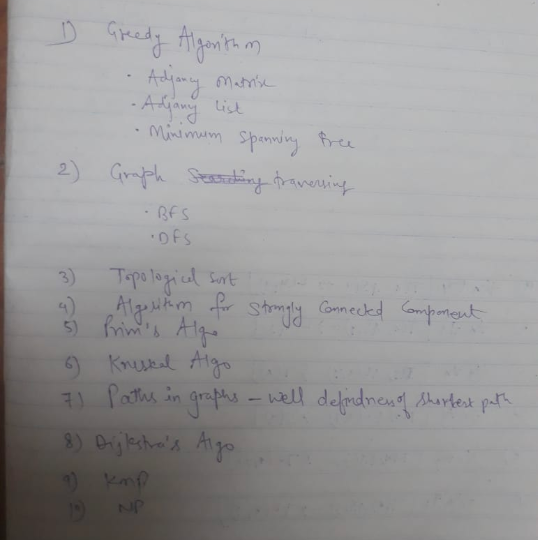 1) Greedy Algorithm
· Adjany Matrix
· Adjany List
· Minimum Spanning Tree
2) Graph Searching traversing
· BFS
· DFS
3) Topological Sort
4) Algorithm for Strongly Connected Component
5) Prim's Algo
6) Kruskal Algo
7) Paths in graphs – well definedness of shortest path
8) Dijkstra's Algo
9) KMP
10) NP